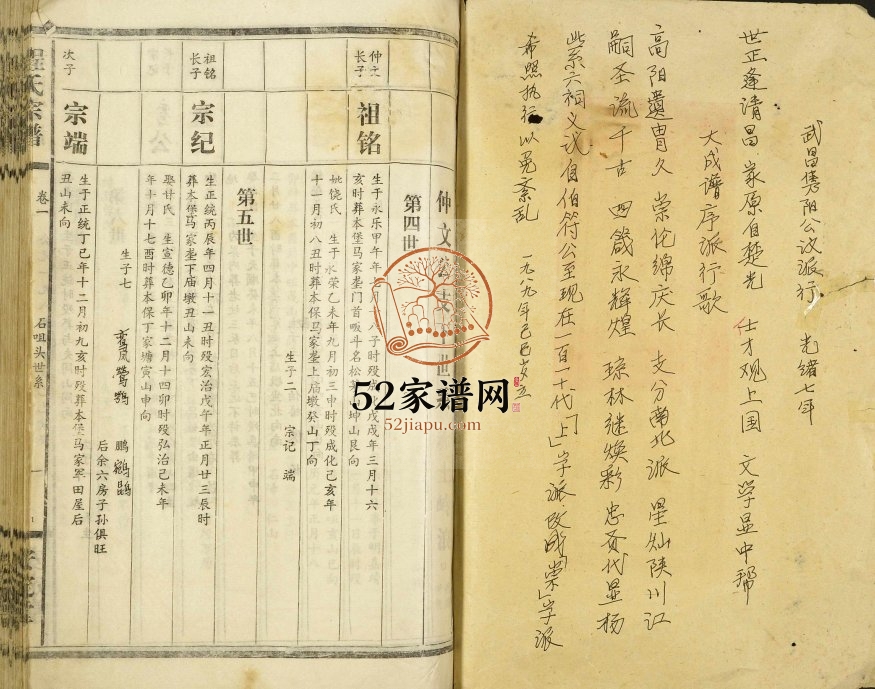 武昌
阳公议派行 光绪七年
世正逢清昌 家原自楚光 仕才观上国 文学显中邦
大成谱序派行歌
高阳遗胄久 崇伦绵庆长 支分南北派 星灿陕川江
嗣圣流千古 四箴永辉煌 琼林继焕彩 忠贡代显杨
此系六祠义议自伯符公至现在一百一十代「上」字派改成「崇」字派
希照执行以免紊乱 一九八九年己巳岁立
仲文公支
第四世
仲文长子 祖铭
生于永乐甲午年
月十八子时殁成
戊戌年三月十六
亥时葬本堡马家垄门首畈斗名松
坤山艮向
姚饶氏 生于永荣乙未年九月初三申时殁成化己亥年
十一月初八丑时葬本保马家垄上庙墩癸山丁向
生子二 宗记 端
第五世
祖铭长子 宗纪
生正统丙辰年四月十一丑时殁宏治戊午年正月廿三辰时
葬本保马家垄下庙墩丑山未向
娶甘氏 生宣德乙卯年十二月十四卯时殁弘治己未年
年十月十七酉时葬本保丁家塘寅山申向
生子七
凤莺
鹏
后余六房子孙俱旺
次子 宗端
生于正统丁巳年十二月初九亥时殁葬本保马家军田屋后
丑山未向
程氏宗谱
卷一
石咀头世系
一
52家谱网
52jiapu.com